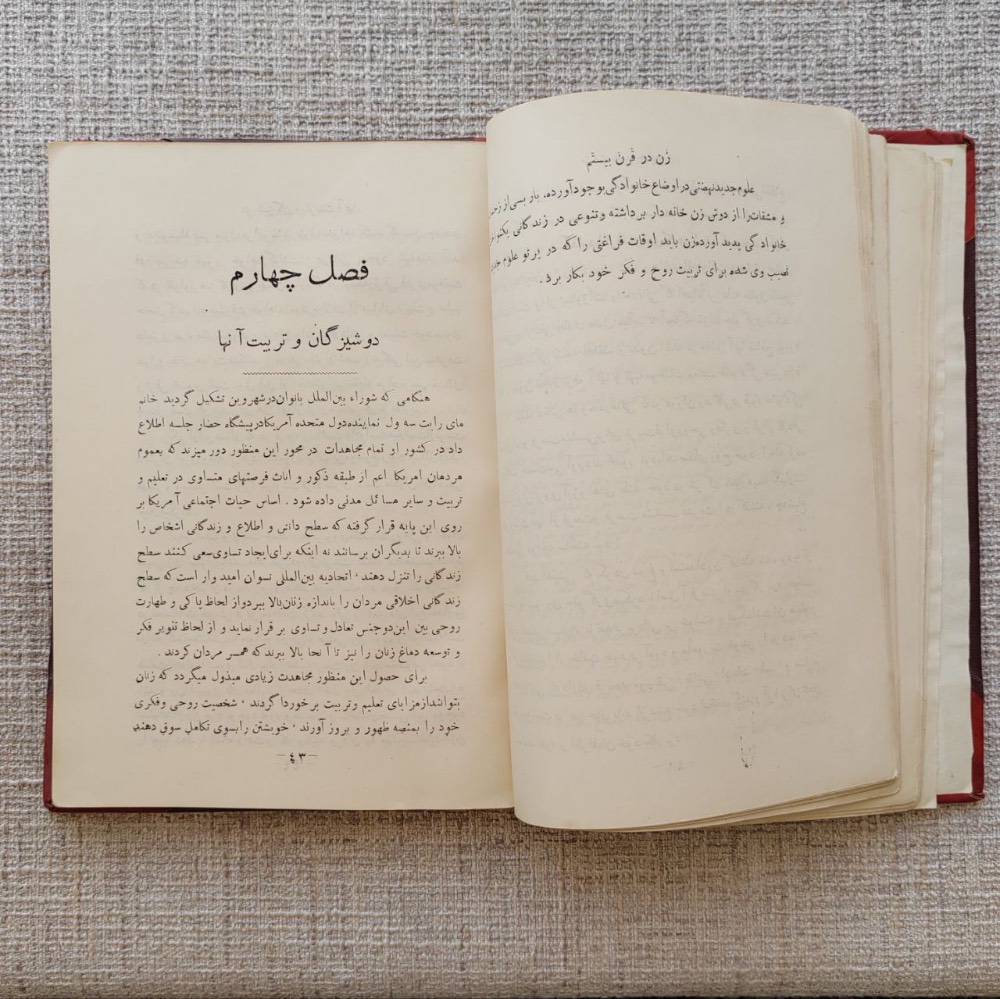 زن در قرن بیستم
علوم جدید نهضتی در اوضاع خانوادگی بوجود آورده، بار بسی از
و مشقات را از دوش زن خانه دار برداشته و تنوعی در زندگانی
خانوادگی پدید آورده زن باید اوقات فراغتی را که در پرتو علوم
نصیب وی شده برای تربیت روح و فکر خود بکار برد .
فصل چهارم
دوشیزگان و تربیت آنها
هنگامی که شوراء بین‌الملل بانوان در شهر وین تشکیل گردید خانم
مای رایت سه ول نماینده دول متحده آمریکا در پیشگاه حضار جلسه اطلاع
داد در کشور او تمام مجاهدات در محور این منظور دور میزند که بعموم
مردمان امریکا اعم از طبقه ذکور و اناث فرصتهای متساوی در تعلیم و
تربیت و سایر مسائل مدنی داده شود . اساس حیات اجتماعی آمریکا بر
روی این پایه قرار گرفته که سطح دانش و اطلاع و زندگانی اشخاص را
بالا ببرند تا بدیگران برسانند نه اینکه برای ایجاد تساوی سعی کنند سطح
زندگانی را تنزل دهند ، اتحادیه بین‌المللی نسوان امیدوار است که سطح
زندگانی اخلاقی مردان را باندازه زنان بالا ببرد و از لحاظ پاکی و طهارت
روحی بین این دو جنس تعادل و تساوی بر قرار نماید و از لحاظ تنویر فکر
و توسعه دماغ زنان را نیز تا آنجا بالا ببرند که همسر مردان گردند .
برای حصول این منظور مجاهدت زیادی مبذول میگردد که زنان
بتوانند از مزایای تعلیم و تربیت برخوردا گردند ، شخصیت روحی و فکری
خود را بمنصه ظهور و بروز آورند ، خویشتن را بسوی تکامل سوق دهند
—٤٣—